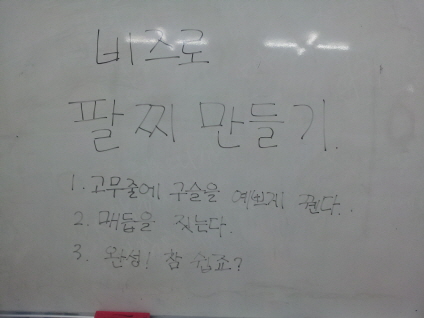 비즈로
팔찌 만들기.
1. 고무줄에 구슬을 예쁘게 꿴다.
2. 매듭을 짓는다.
3. 완성! 참 쉽죠?